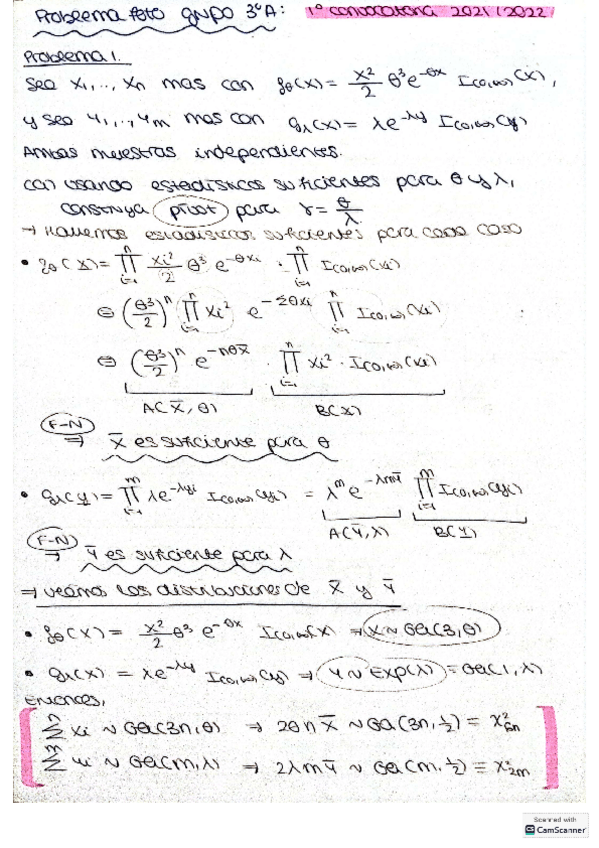 Problema foto grupo 3ºA: 1ª convocatoria 2021/2022
Problema 1.
Sea X₁,..., Xn mas con f_θ(x) = x²/2 θ³ e^{-θx} I_{(0,∞)}(x),
y sea Y₁,..., Ym mas con g_λ(x) = λe^{-λy} I_{(0,∞)}(y)
Ambas muestras independientes.
(a) usando estadísticos suficientes para θ y λ,
construya pivot para γ = θ/λ
→ Hallemos estadísticos suficientes para cada caso
• f_θ(x) = ∏_{i=1}^{n} xi²/2 θ³ e^{-θxi} · ∏_{i=1}^{n} I_{(0,∞)}(xi)
⊜ (θ³/2)^n ∏_{i=1}^{n} xi² e^{-Σθxi} ∏_{i=1}^{n} I_{(0,∞)}(xi)
⊜ (θ³/2)^n e^{-nθx̄} · ∏_{i=1}^{n} xi² · I_{(0,∞)}(xi)
A(x̄, θ) B(x)
F-N
⇒ x̄ es suficiente para θ
• g_λ(y) = ∏_{i=1}^{m} λe^{-λyi} I_{(0,∞)}(yi) = λ^m e^{-λmȳ} ∏_{i=1}^{m} I_{(0,∞)}(yi)
A(ȳ, λ) B(y)
F-N
→ ȳ es suficiente para λ
⇒ veamos las distribuciones de x̄ y ȳ
• f_θ(x) = x²/2 θ³ e^{-θx} I_{(0,∞)}(x) ⇒ X ~ Ga(3, θ)
• g_λ(x) = λe^{-λy} I_{(0,∞)}(y) ⇒ Y ~ Exp(λ) = Ga(1, λ)
Entonces,
Σ^n xi ~ Ga(3n, θ) → 2θn x̄ ~ Ga(3n, 1/2) = χ²_{6n}
Σ^m yi ~ Ga(m, λ) → 2λmȳ ~ Ga(m, 1/2) = χ²_{2m}
Scanned with
CS CamScanner